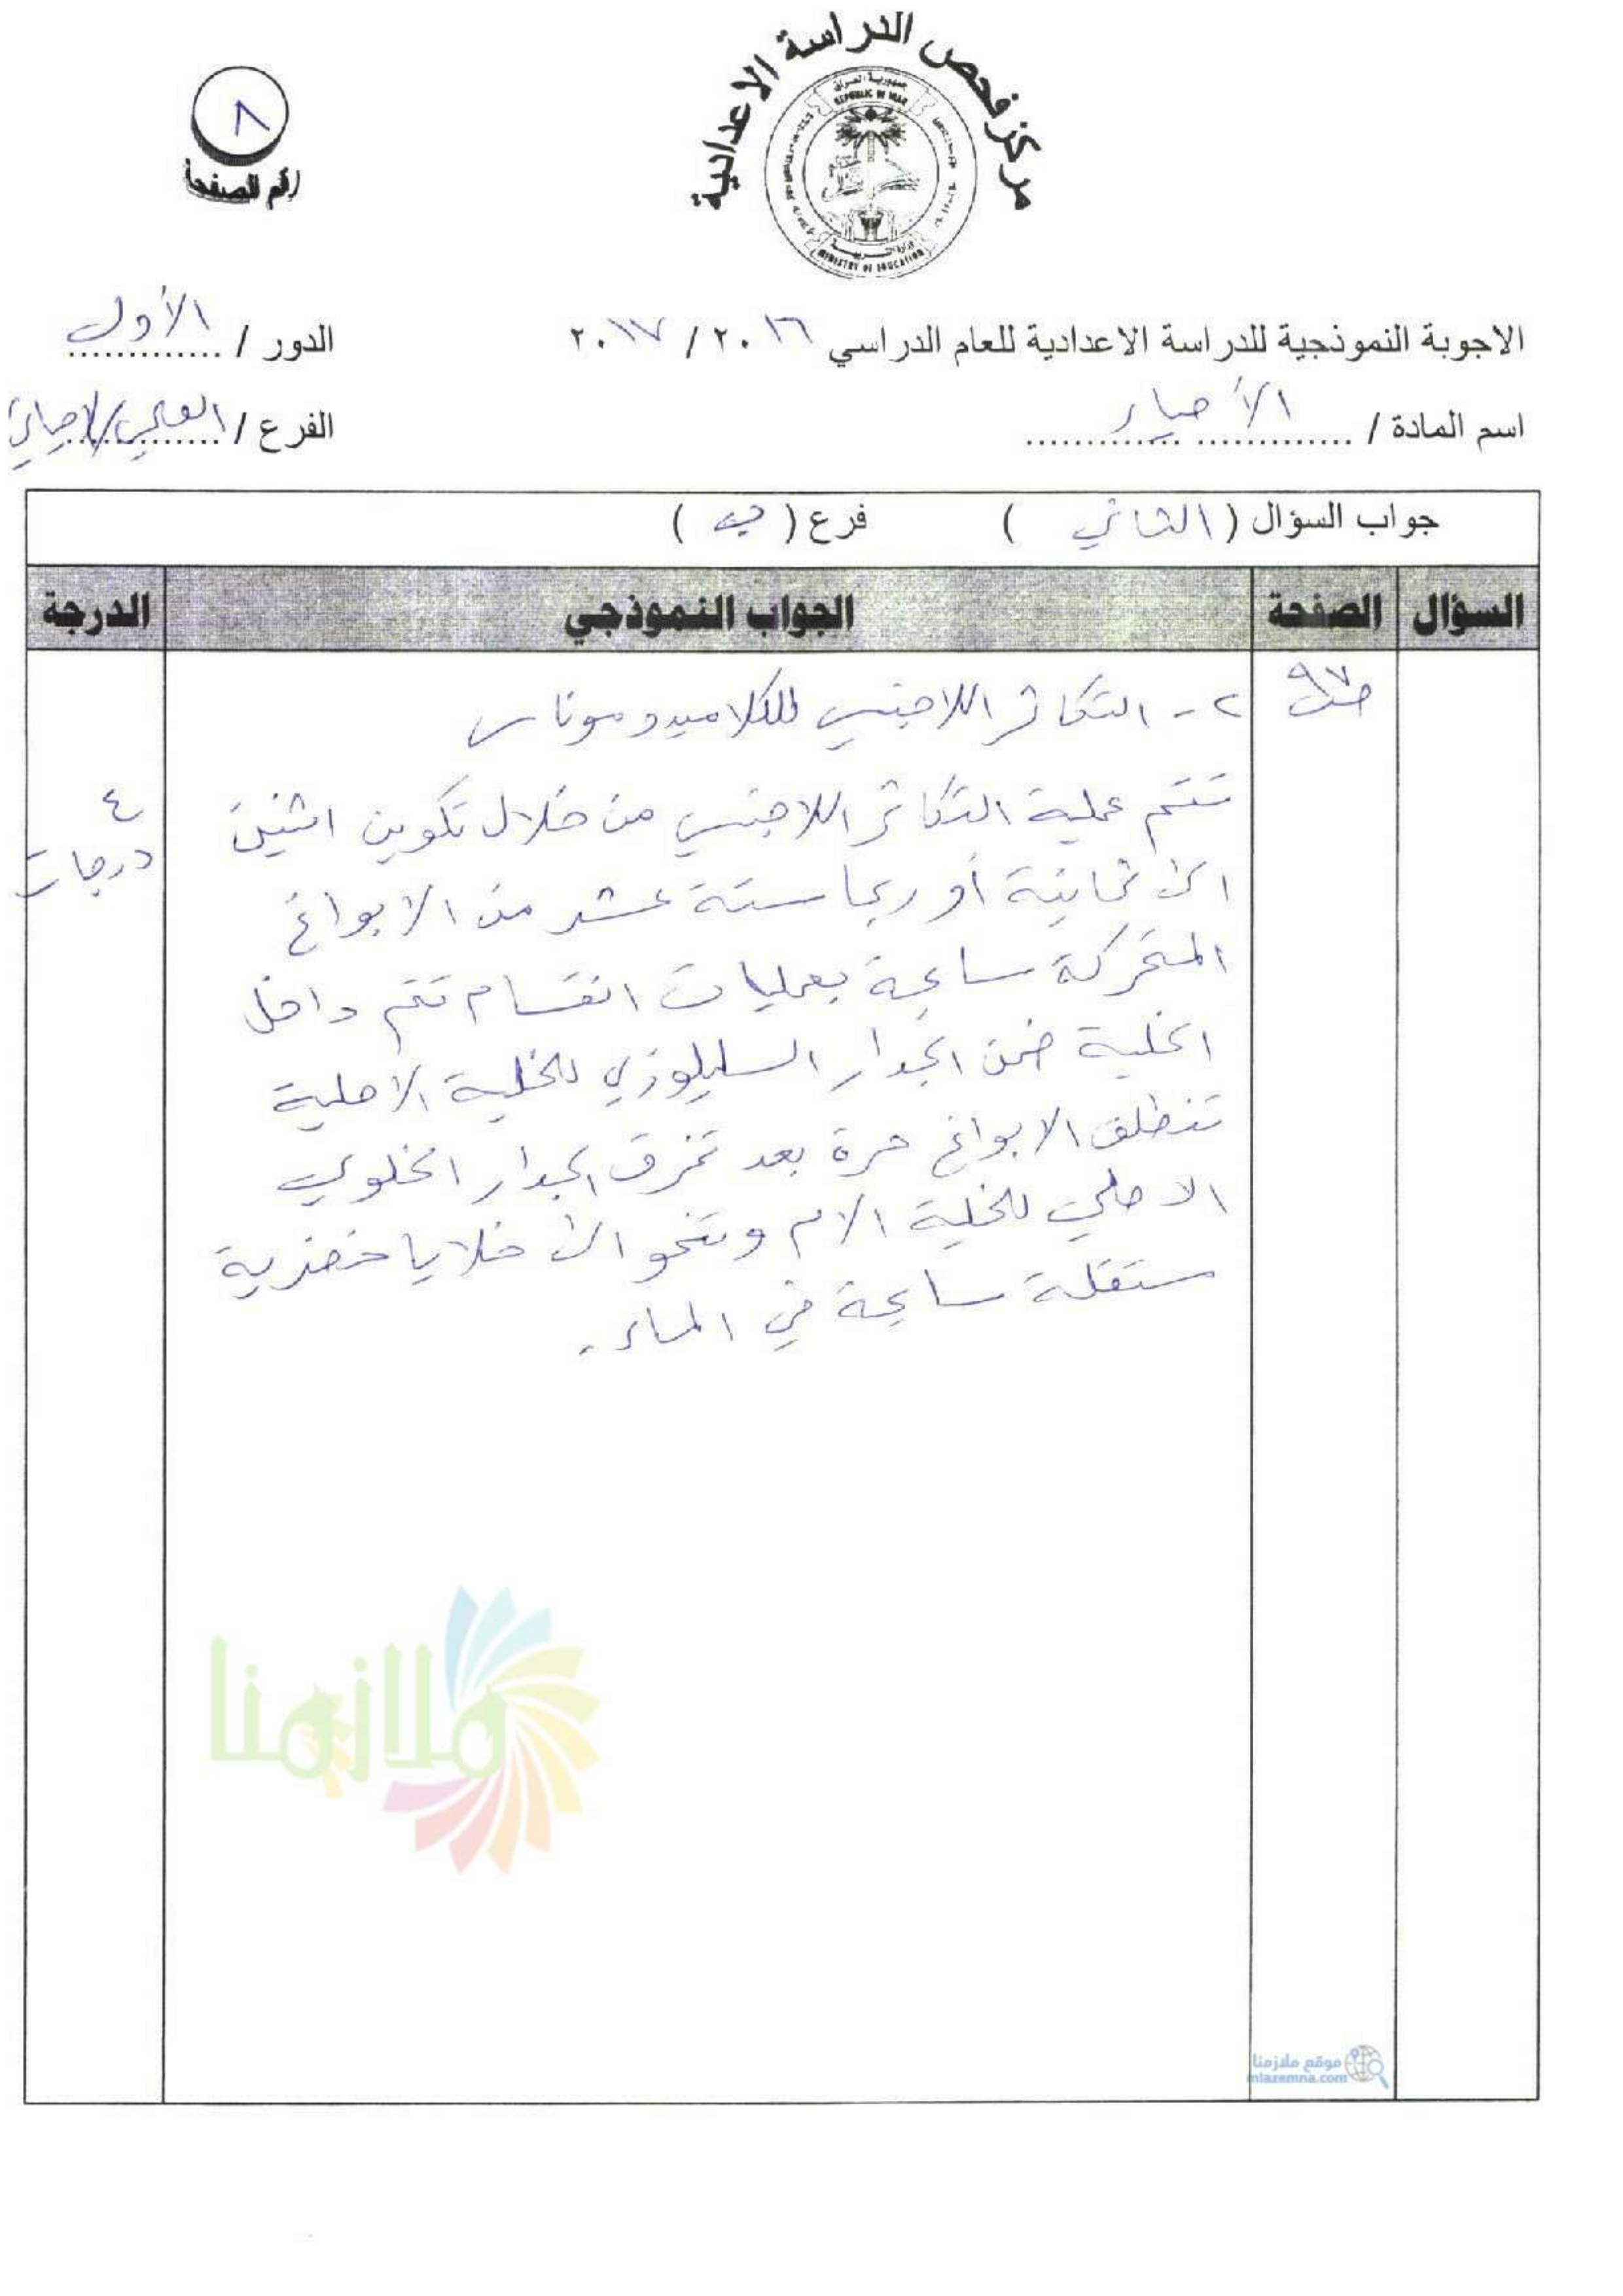 مركز فحص الدراسة الاعدادية
جمهورية العراق
REPUBLIC OF IRAQ
وزارة التربية
MINISTRY OF EDUCATION
٨
رقم الصفحة
الاجوبة النموذجية للدراسة الاعدادية للعام الدراسي ٢٠١٦ / ٢٠١٧
الدور / الأول
اسم المادة / الأحياء
الفرع / العلمي/الاحيائي
جواب السؤال ( الثاني ) فرع ( ب )
السؤال الصفحة الجواب النموذجي الدرجة
ص٩٧
٢- التكاثر اللاجنسي للكلاميدوموناس
تتم عملية التكاثر اللاجنسي من خلال تكوين اثنين
٤ درجات
الى ثمانية أو ربما ستة عشر من الابواغ
المتحركة سابحة بعمليات انقسام تتم داخل
الخلية ضمن الجدار السليلوزي للخلية الاصلية
تنطلق الابواغ حرة بعد تمزق الجدار الخلوي
الاصلي للخلية الام وتنمو الى خلايا خضرية
مستقلة سابحة في الماء.
ملازمنا
موقع ملازمنا
mlazemna.com